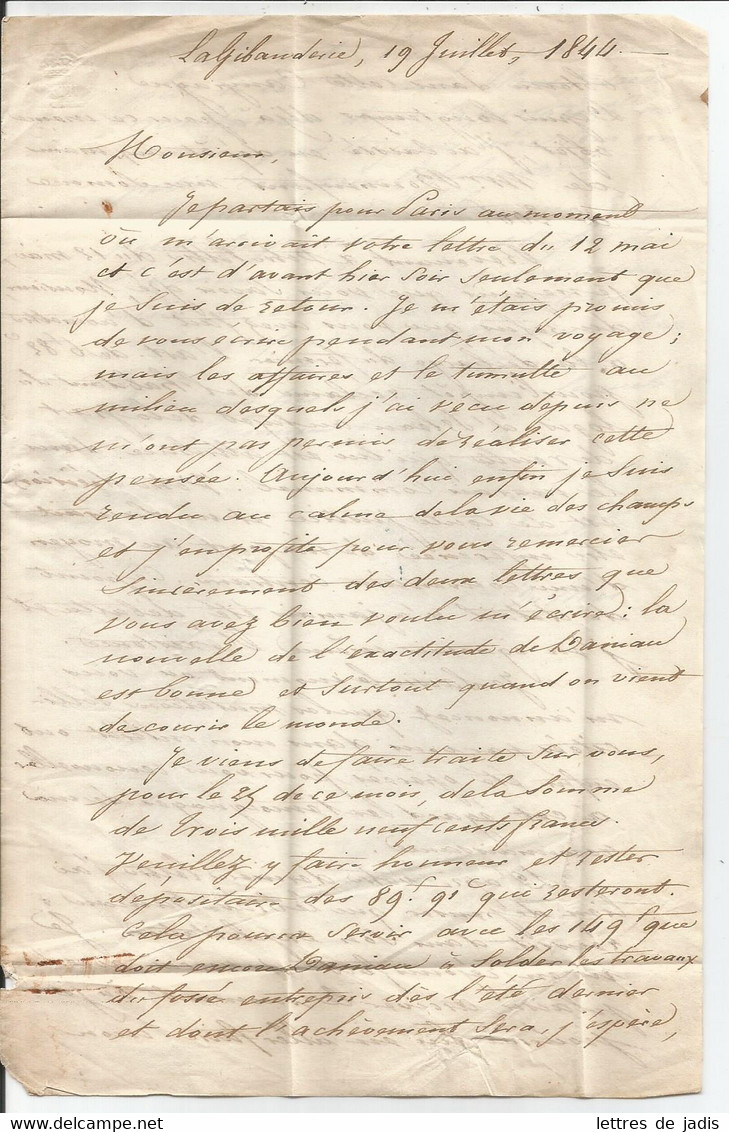 LaGibauderie, 19 Juillet, 1844.
Monsieur,
Je partais pour Paris au moment
où m'arrivait votre lettre du 12 mai
et c'est d'avant hier soir seulement que
je suis de retour. Je m'étais promis
de vous écrire pendant mon voyage;
mais les affaires et le tumulte au
milieu desquels j'ai vécu depuis ne
m'ont pas permis de réaliser cette
pensée. Aujourd'hui enfin je suis
rendu au calme de la vie des champs
et j'en profite pour vous remercier
sincèrement des deux lettres que
vous avez bien voulu m'écrire: la
nouvelle de l'éxactitude de Daniau
est bonne et surtout quand on vient
de courir le monde.
Je viens de faire traite sur vous,
pour le 25 de ce mois, de la somme
de trois mille neuf cents francs.
Veuillez y faire honneur et rester
dépositaire des 89f 91c qui resteront.
Cela pourra servir avec les 149f que
doit encore Daniau à solder les travaux
du fossé entrepris dès l'été dernier
et dont l'achèvement sera, j'espère,
lettres de jadis